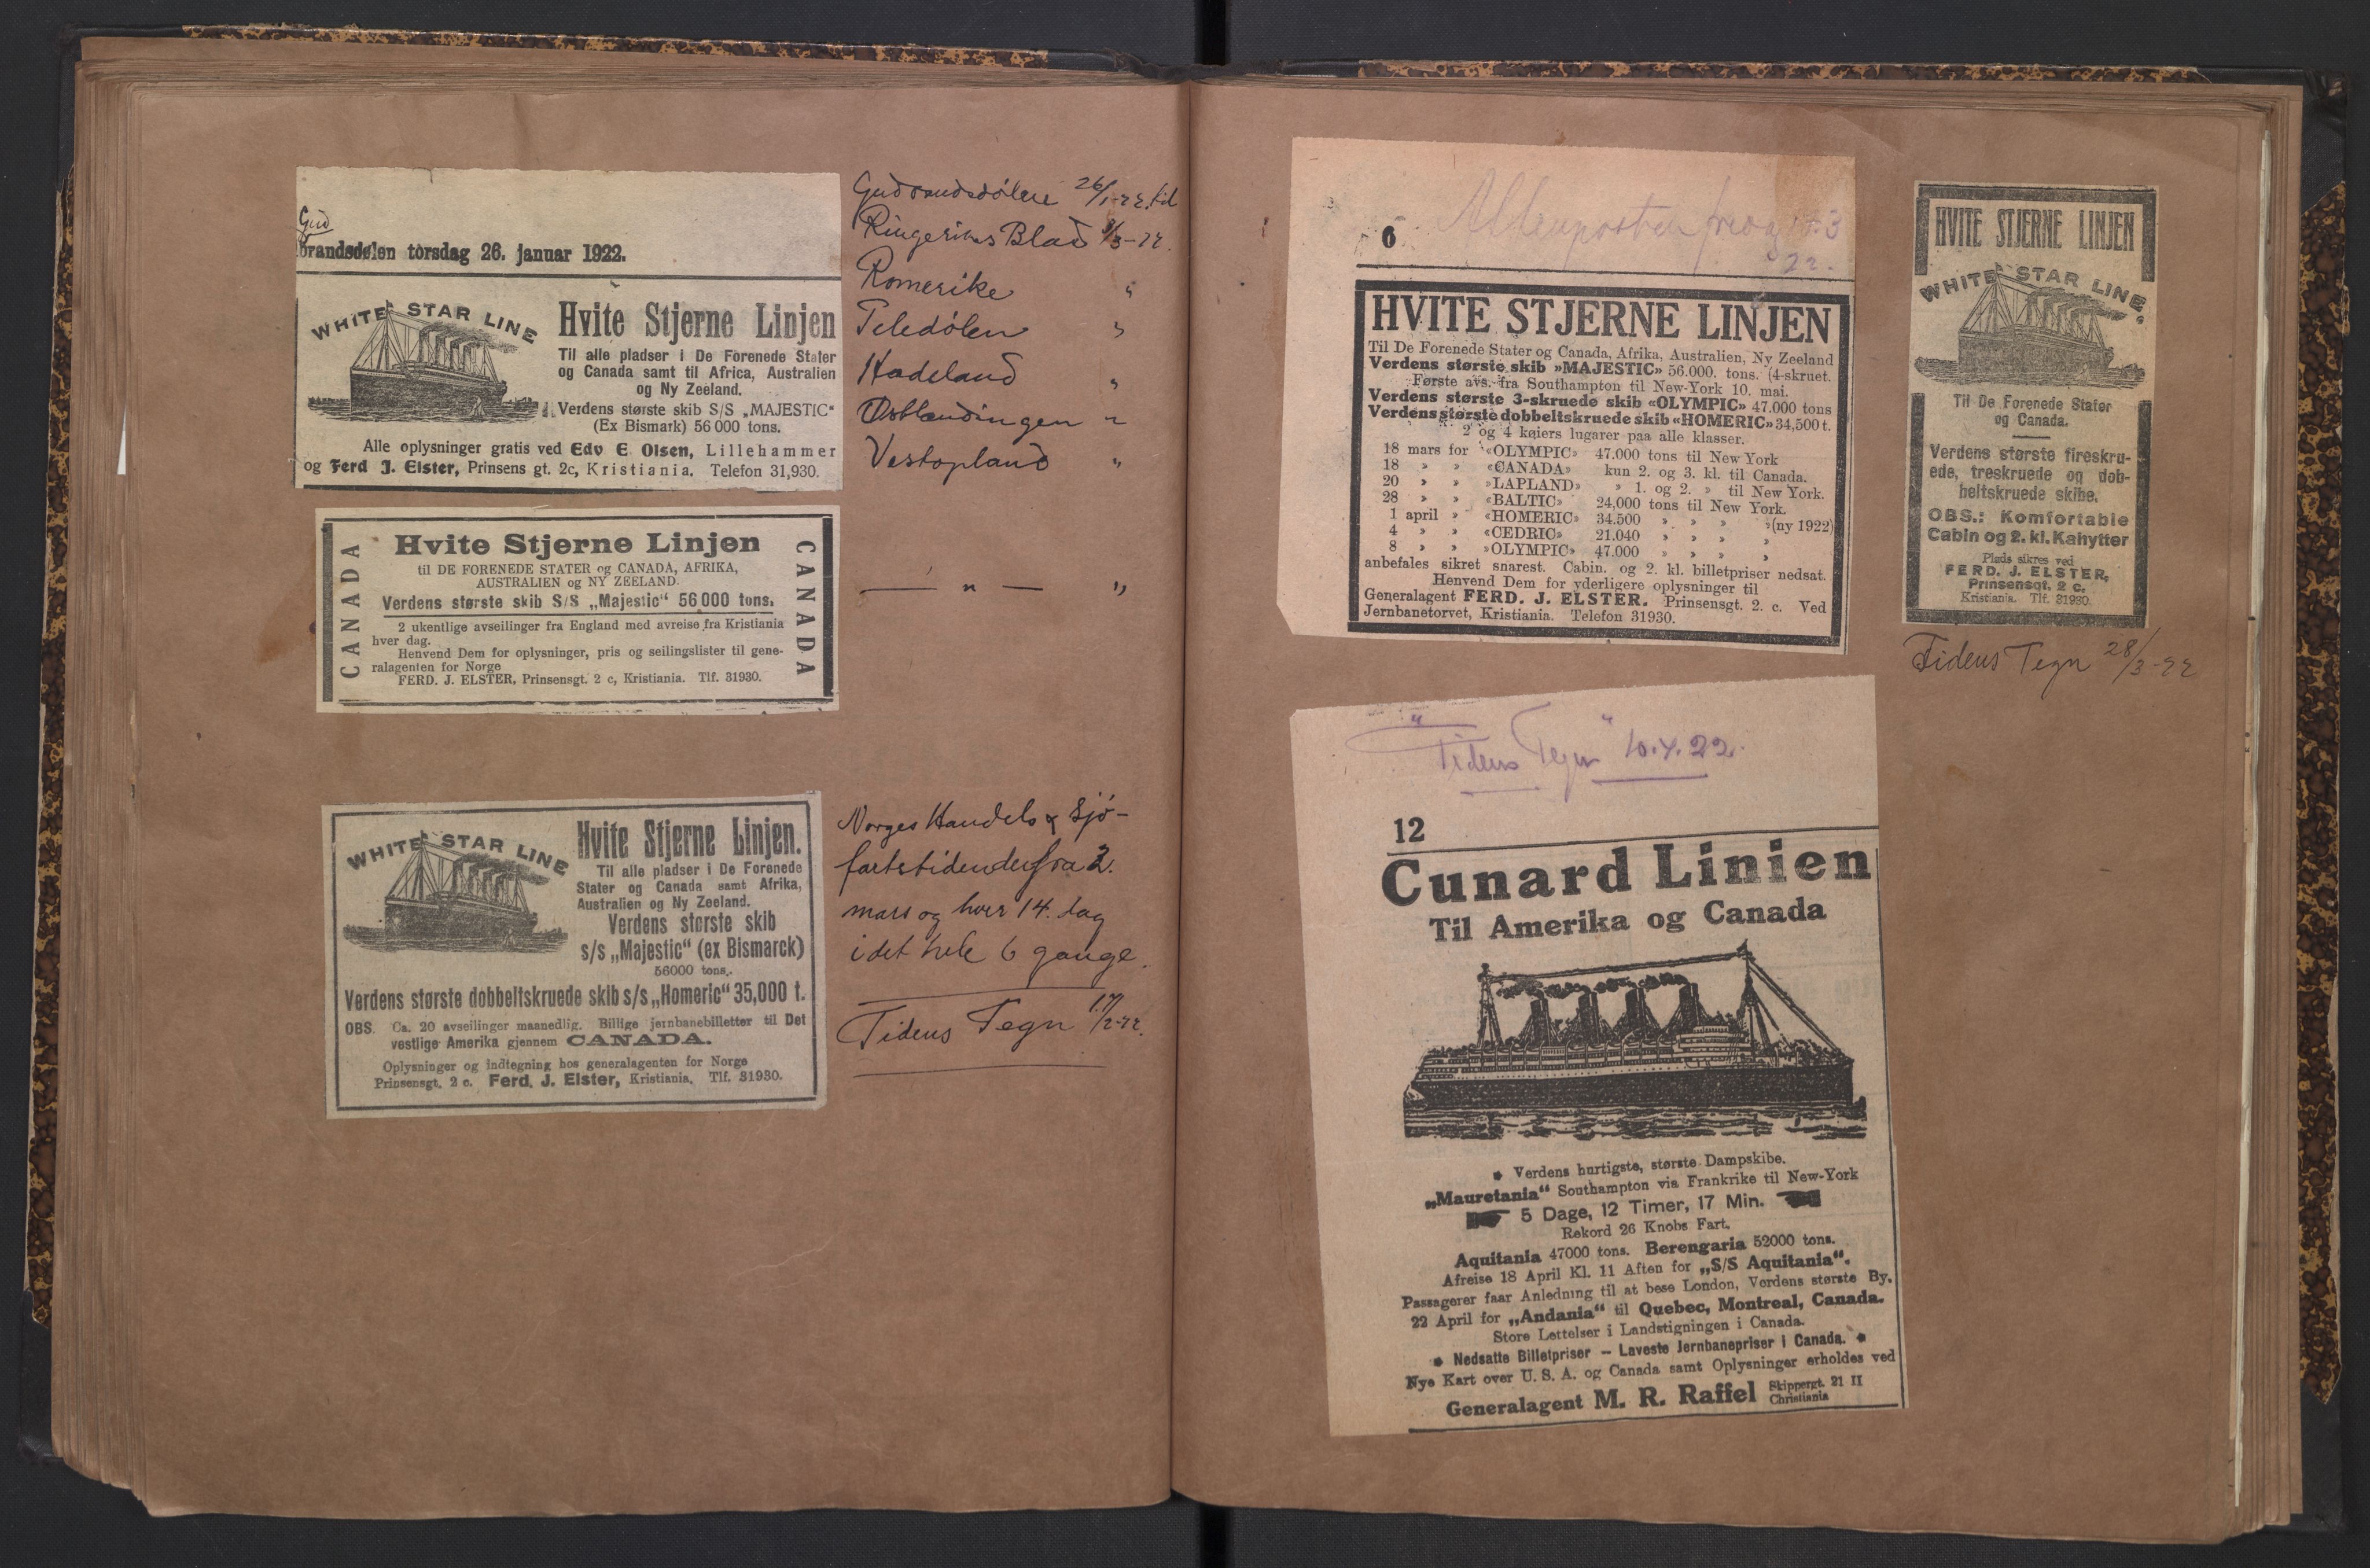 Gud
brandsdølen torsdag 26. januar 1922.
WHITE STAR LINE
Hvite Stjerne Linjen
Til alle pladser i De Forenede Stater
og Canada samt til Africa, Australien
og Ny Zeeland.
Verdens største skib S/S „MAJESTIC“
(Ex Bismark) 56 000 tons.
Alle oplysninger gratis ved Edv E. Olsen, Lillehammer
og Ferd J. Elster, Prinsens gt. 2c, Kristiania. Telefon 31,930.
Gudbrandsdølen 26/1-22. til
Ringerikes Blad 1/3-22.
Romerike "
Teledølen "
Hadeland "
Østlendingen "
Vestopland "
CANADA
Hvite Stjerne Linjen
til DE FORENEDE STATER og CANADA, AFRIKA,
AUSTRALIEN og NY ZEELAND.
Verdens største skib S/S „Majestic“ 56 000 tons.
2 ukentlige avseilinger fra England med avreise fra Kristiania
hver dag.
Henvend Dem for oplysninger, pris og seilingslister til gene-
ralagenten for Norge
FERD. J. ELSTER, Prinsensgt. 2 c, Kristiania. Tlf. 31930.
CANADA
— " — "
WHITE STAR LINE
Hvite Stjerne Linjen.
Til alle pladser i De Forenede
Stater og Canada samt Afrika,
Australien og Ny Zeeland.
Verdens største skib
s/s „Majestic“ (ex Bismarck)
56000 tons.
Verdens største dobbeltskruede skib s/s „Homeric“ 35,000 t.
OBS. Ca. 20 avseilinger maanedlig. Billige jernbanebilletter til Det
vestlige Amerika gjennem CANADA.
Oplysninger og indtegning hos generalagenten for Norge
Prinsensgt. 2 c. Ferd. J. Elster, Kristiania. Tlf. 31930.
Norges Handels & Sjø-
fartstidende fra 2.
mars og hver 14. dag
i det hele 6 gange.
Tidens Tegn 17/2-22.
6
Aftenposten
22.
HVITE STJERNE LINJEN
Til De Forenede Stater og Canada, Afrika, Australien, Ny Zeeland
Verdens største skib »MAJESTIC» 56.000. tons. (4-skruet.
Første avs. fra Southampton til New-York 10. mai.
Verdens største 3-skruede skib «OLYMPIC» 47.000 tons
Verdens største dobbeltskruede skib «HOMERIC» 34,500 t.
2 og 4 køiers lugarer paa alle klasser.
18 mars for «OLYMPIC» 47.000 tons til New York
18 » » «CANADA» kun 2. og 3. kl. til Canada.
20 » » »LAPLAND» » 1. og 2. » til New York.
28 » » «BALTIC» 24,000 tons til New York.
1 april » «HOMERIC» 34.500 » » » »(ny 1922)
4 » » «CEDRIC» 21.040 » » » »
8 » » »OLYMPIC» 47.000 » » » »
anbefales sikret snarest. Cabin. og 2. kl. billetpriser nedsat.
Henvend Dem for yderligere oplysninger til
Generalagent FERD. J. ELSTER. Prinsensgt. 2. c. Ved
Jernbanetorvet, Kristiania. Telefon 31930.
HVITE STJERNE LINJEN
WHITE STAR LINE.
Til De Forenede Stater
og Canada.
Verdens største fireskru-
ede, treskruede og dob-
beltskruede skibe.
OBS.: Komfortable
Cabin og 2. kl. Kahytter
Plads sikres ved
FERD. J. ELSTER,
Prinsensgt. 2 c.
Kristiania. Tlf. 31930.
Tidens Tegn 28/3-22
"Tidens Tegn" 10.4.22.
12
Cunard Linien
Til Amerika og Canada
Verdens hurtigste, største Dampskibe.
„Mauretania“ Southampton via Frankrike til New-York
5 Dage, 12 Timer, 17 Min.
Rekord 26 Knobs Fart.
Aquitania 47000 tons. Berengaria 52000 tons.
Afreise 18 April Kl. 11 Aften for „S/S Aquitania“.
Passagerer faar Anledning til at bese London, Verdens største By.
22 April for „Andania“ til Quebec, Montreal, Canada.
Store Lettelser i Landstigningen i Canada.
Nedsatte Billetpriser – Laveste Jernbanepriser i Canada.
Nye Kart over U. S. A. og Canada samt Oplysninger erholdes ved
Generalagent M. R. Raffel Skippergt. 21 II
Christiania